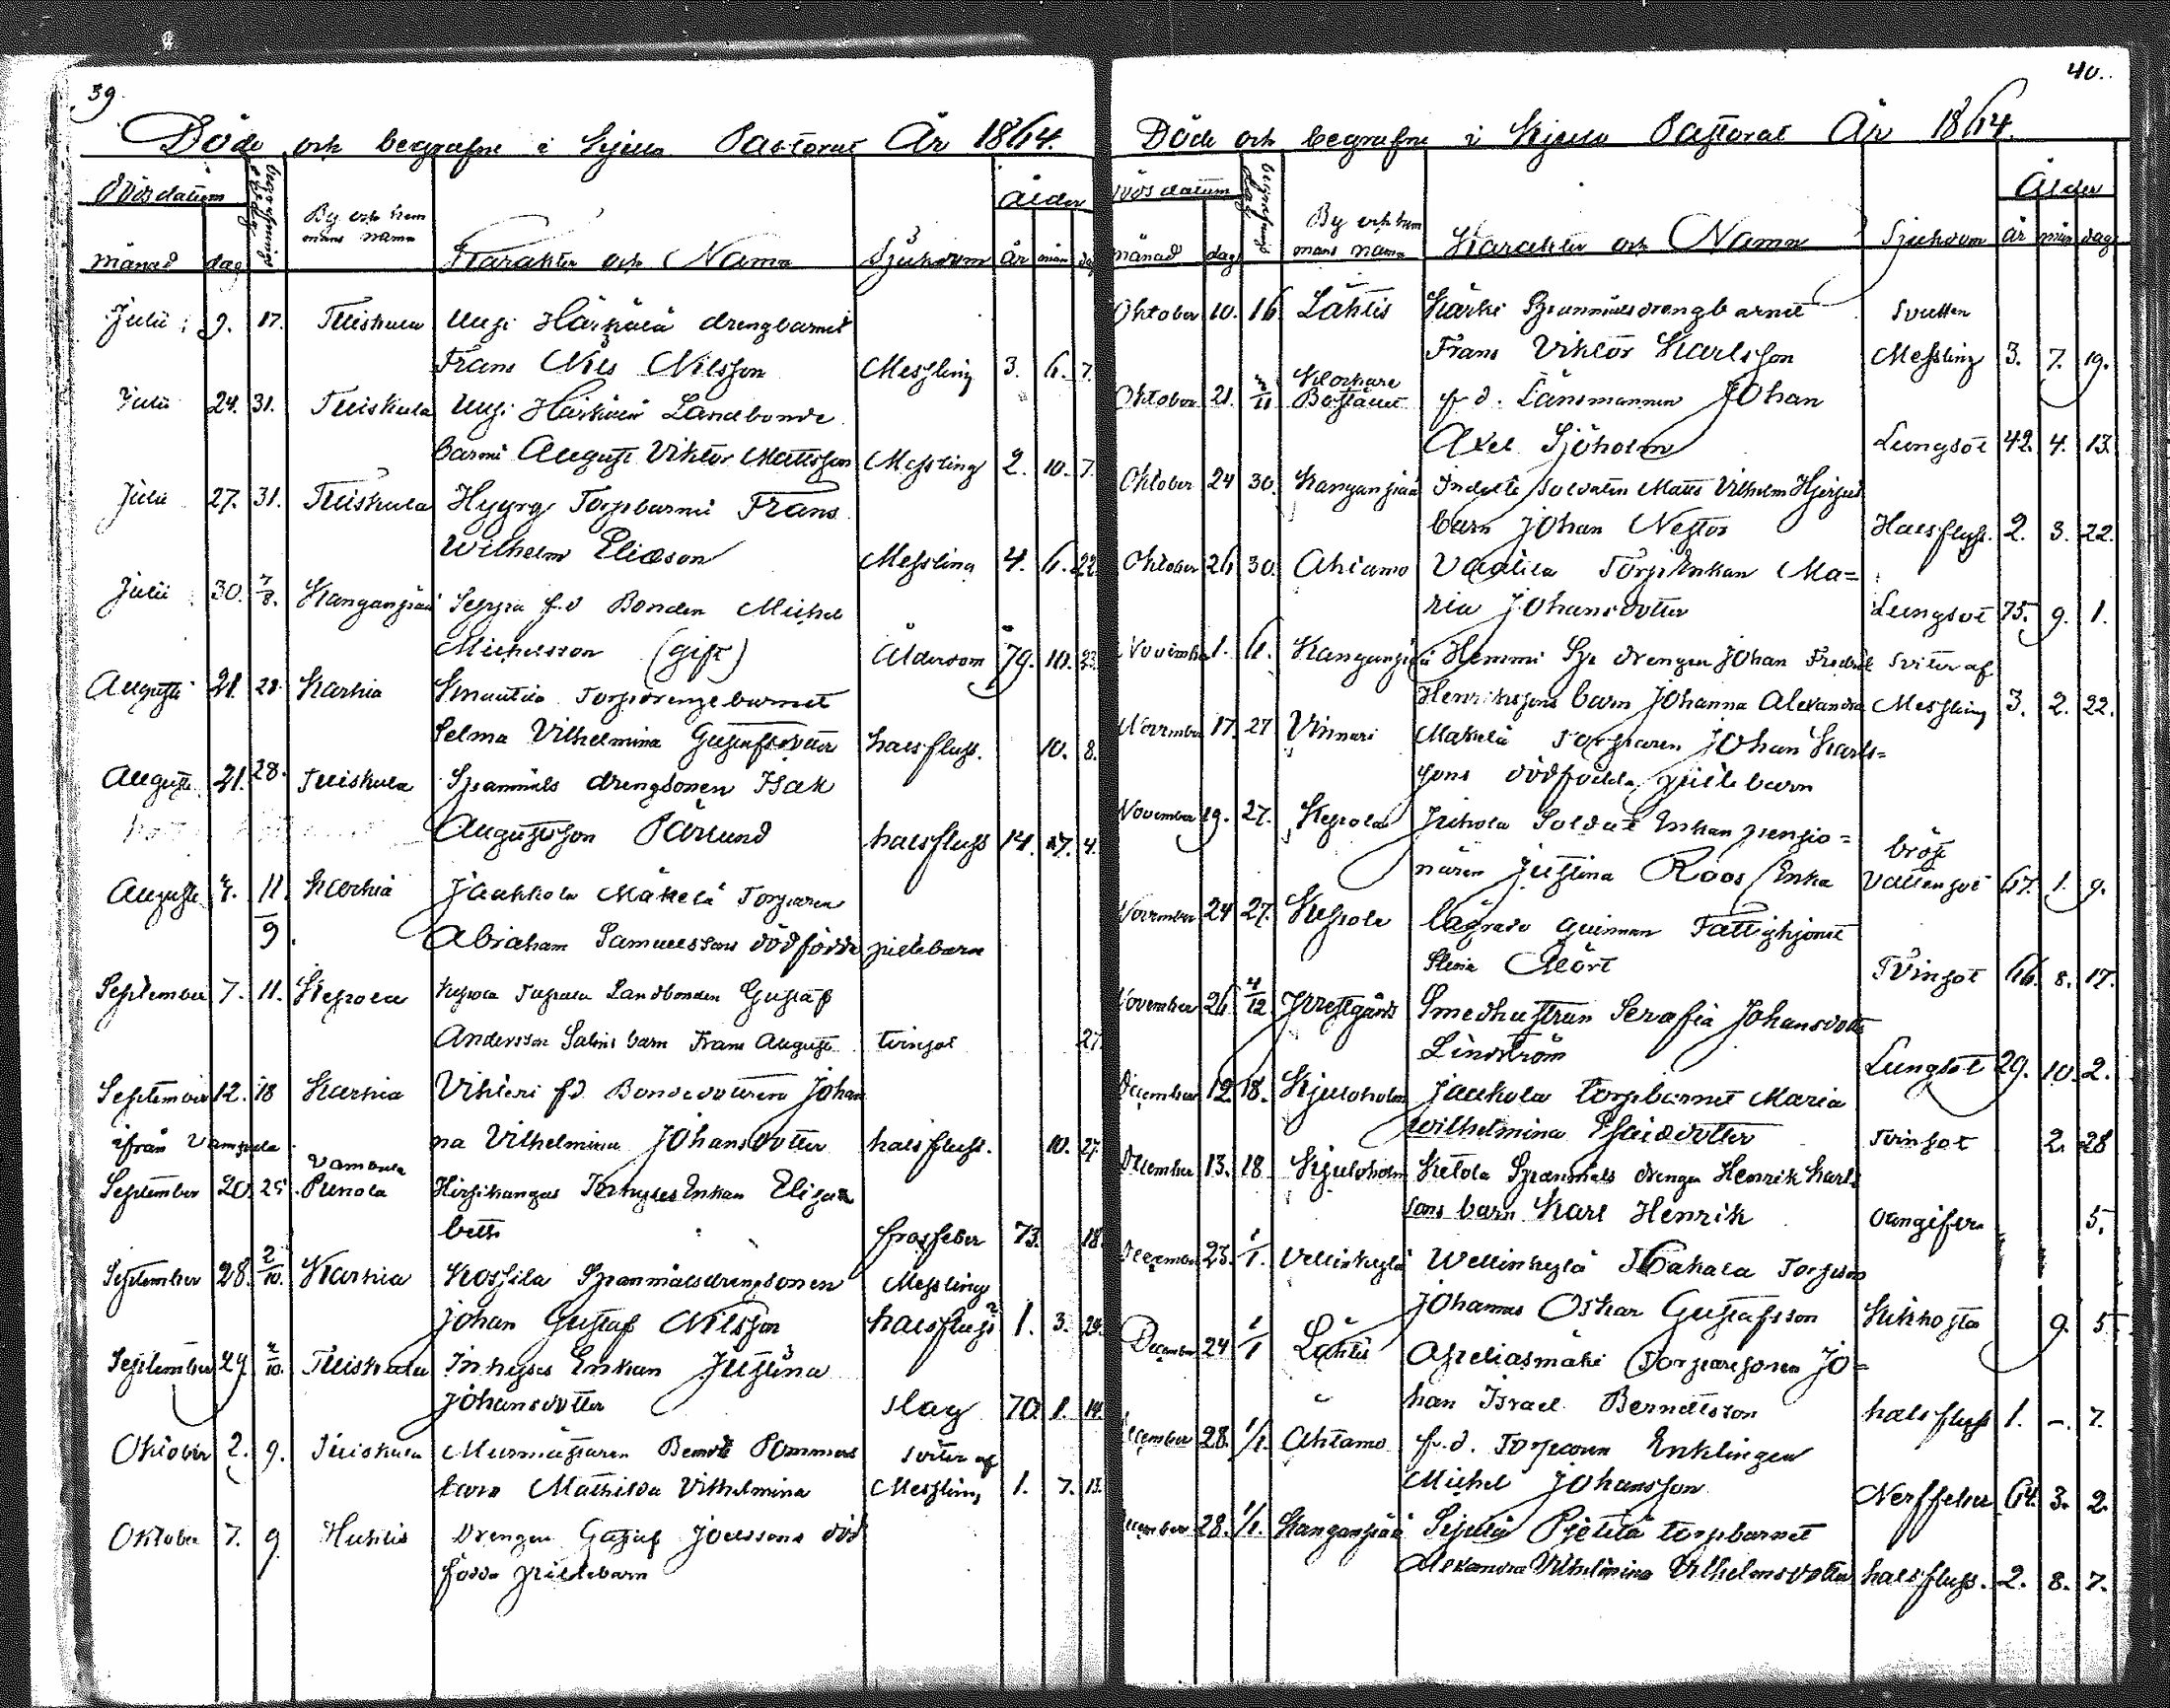 39.
Döde och begrafne i Kjulo Pastorat År 1864.
Dödsdatum
begrafnings dag
By och hem
mans namn
Karakter och Namn
Sjukdom
Ålder
månad dag
år mån dag
Julii 9. 17. Tuiskula Uusi Härkälä drengbarnet
Frans Nils Nilsson Messling 3. 6. 7.
Julii 24. 31. Tuiskula Uusi Härkälä Landbonde
barnet August Viktor Mattsson Messling 2. 10. 7.
Julii 27. 31. Tuiskula Hyyry Torpbarnet Frans
Wilhelm Eliasson Messling 4. 6. 22.
Julii 30. 7/8. Kanganpää Seppä f.d Bonden Michel
Michelsson (gift) Ålderdom 79. 10. 23.
Augusti 21. 28. Karhia Torpdrengebarnet
Selma Vilhelmina Gustafsdotter halsfluss. 10. 8.
Augusti 21. 28. Tuiskula Spanmåls drengsonen Isak
Augustsson Pärlund halsfluss 14. 4.
Augusti 7. 11. Karhia Jaakkola Mäkelä Torparen
9. Abraham Samuelssons dödfödde pilebarn
September 7. 11. Kepola Kepola Landbonden Gustaf
Andersson Salins barn Frans August tvinsot 27.
September 12. 18 Karhia Vikleri f.d. Bondedotteren Johan
ifrån Vampula na Vilhelmina Johansdotter halsfluss. 10. 27.
Vampula
September 20. 25. Punola Hirsikangas Inhyses Enkan Elisa
beth frosfeber 73. 18.
September 28. 2/10. Karhia Kossila Spanmålsdrengsonen Messling
Johan Gustaf Nilsson halsfluss 1. 3. 29.
September 29. 2/10. Tuiskula Inhyses Enkan Justina
Johansdotter slag 70. 1. 14.
Oktober 2. 9. Tuiskula Murmästaren Berndt Pommers sviter af
barn Mathilda Vilhelmina Messling 1. 7. 13.
Oktober 7. 9. Huhtis Drengen Gustaf Joelssons död
födde pildebarn
40.
Döde och begrafne i Kjulo Pastorat År 1864.
Döds datum
begrafnings dag
By och hem
mans namn
Karakter och Namn
Sjukdom
Ålder
månad dag
år mån dag
Oktober 10. 16 Lähtis Kärki Spanmålsdrengbarnet Sviter
Frans Viktor Karlsson Messling 3. 7. 19.
Klockare
Oktober 21. Bostället f.d. Länsmannen Johan
Axel Sjöholm Lungsot 42. 4. 13.
Oktober 24 30. Kanganpää Indelte soldaten Matts Vilhelm Hjerpes
barn Johan Nestor Halsfluss. 2. 3. 22.
Oktober 26 30. Ahtamo Torp Enkan Ma=
ria Johansdotter Lungsot 75. 9. 1.
November 1. 6. Kanganpää Hemmi Sp. drengen Johan Fredrik sviter af
Henrikssons barn Johanna Alexandra Messling 3. 2. 22.
November 17. 27 Vinnari Mäkelä Torparen Johan Karls=
sons dödfödda pilebarn
November 19. 27. Kepola Juhola Soldat Enkan pensio= bröst
nären Justina Roos Enka Vattensot 67. 1. 9.
November 24 27. Kepola lägrade quinnan Fattighjonet
Stina Mört Tvinsot 66. 8. 17.
November 26 4/12 Prestgård Smedhustrun Serafia Johansdotter
Lindström Lungsot 29. 10. 2.
December 12. 18. Kjuloholm Jaakola torpbarnet Maria
Wilhelmina Esaidotter Tvinsot 2. 28
December 13. 18 Kjuloholm Ketola Spanmåls drengen Henrik Karls
sons barn Karl Henrik oangifven 5.
December 23. 1/1. Vellinkylä Wellinkylä Torpson
Johannes Oskar Gustafsson Kikhosta 9. 5
December 24 1/1 Lähtis Torparesonen Jo=
han Israel Berndtsson halsfluss 1. –. 7.
December 28. 1/1. Ahtamo f.d. Torparen Enklingen
Michel Johansson Nerffeber 64. 3. 2.
December 28. 1/1. Kanganpää torpbarnet
Alexandra Vilhelmina Vilhelmsdotter halsfluss. 2. 8. 7.